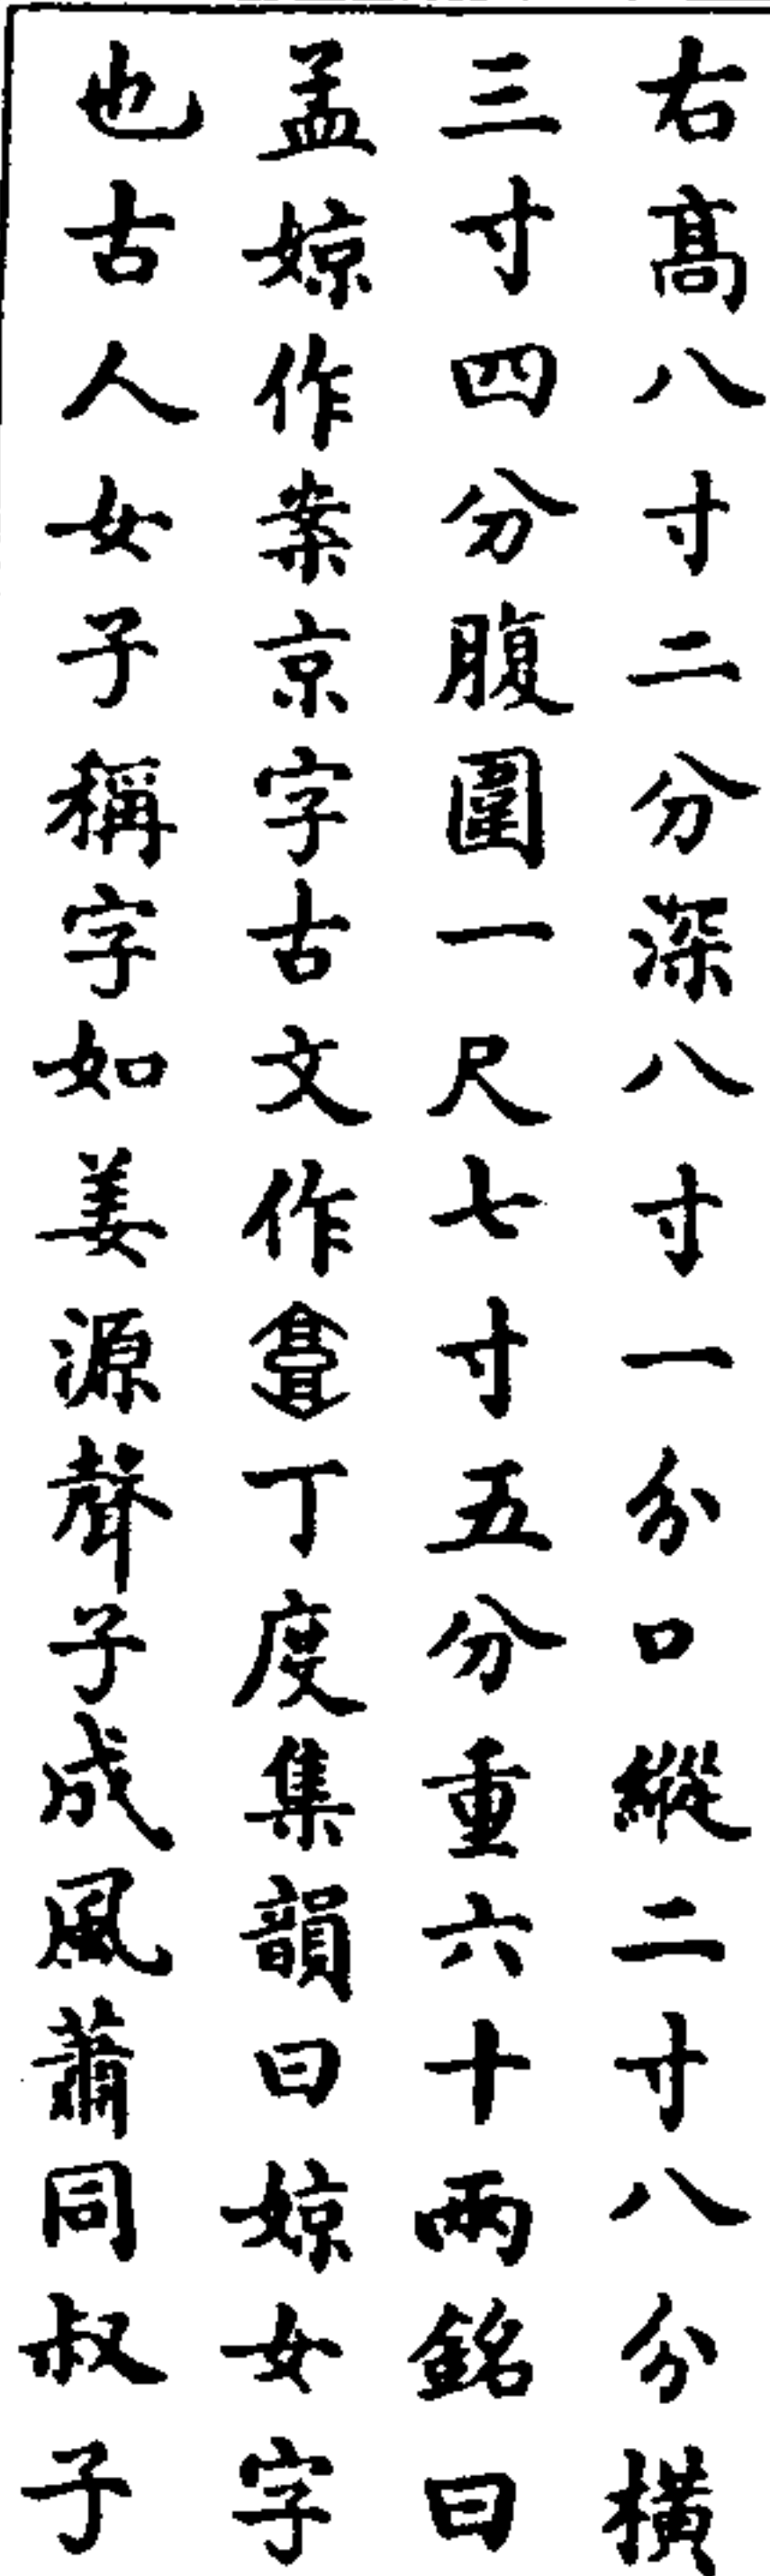 右高八寸二分深八寸一分口縱二寸八分橫
三寸四分腹圍一尺七寸五分重六十兩銘曰
孟婛作案京字古文作丁度集韻曰婛女字
也古人女子稱字如姜源聲子成風蕭同叔子